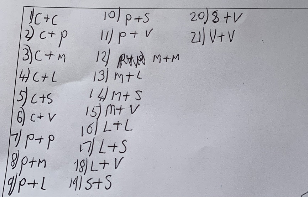 1) C+C
2) C+P
3) C+M
4) C+L
5) C+S
6) C+V
7) P+P
8) P+M
9) P+L
10) P+S
11) P+V
12) M+M
13) M+L
14) M+S
15) M+V
16) L+L
17) L+S
18) L+V
19) S+S
20) S+V
21) V+V